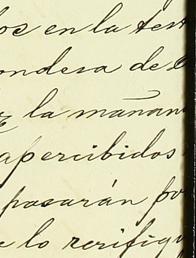 los en la test
ondesa de
la mañan
apercibidos
pasarán po
e lo rerifiqu